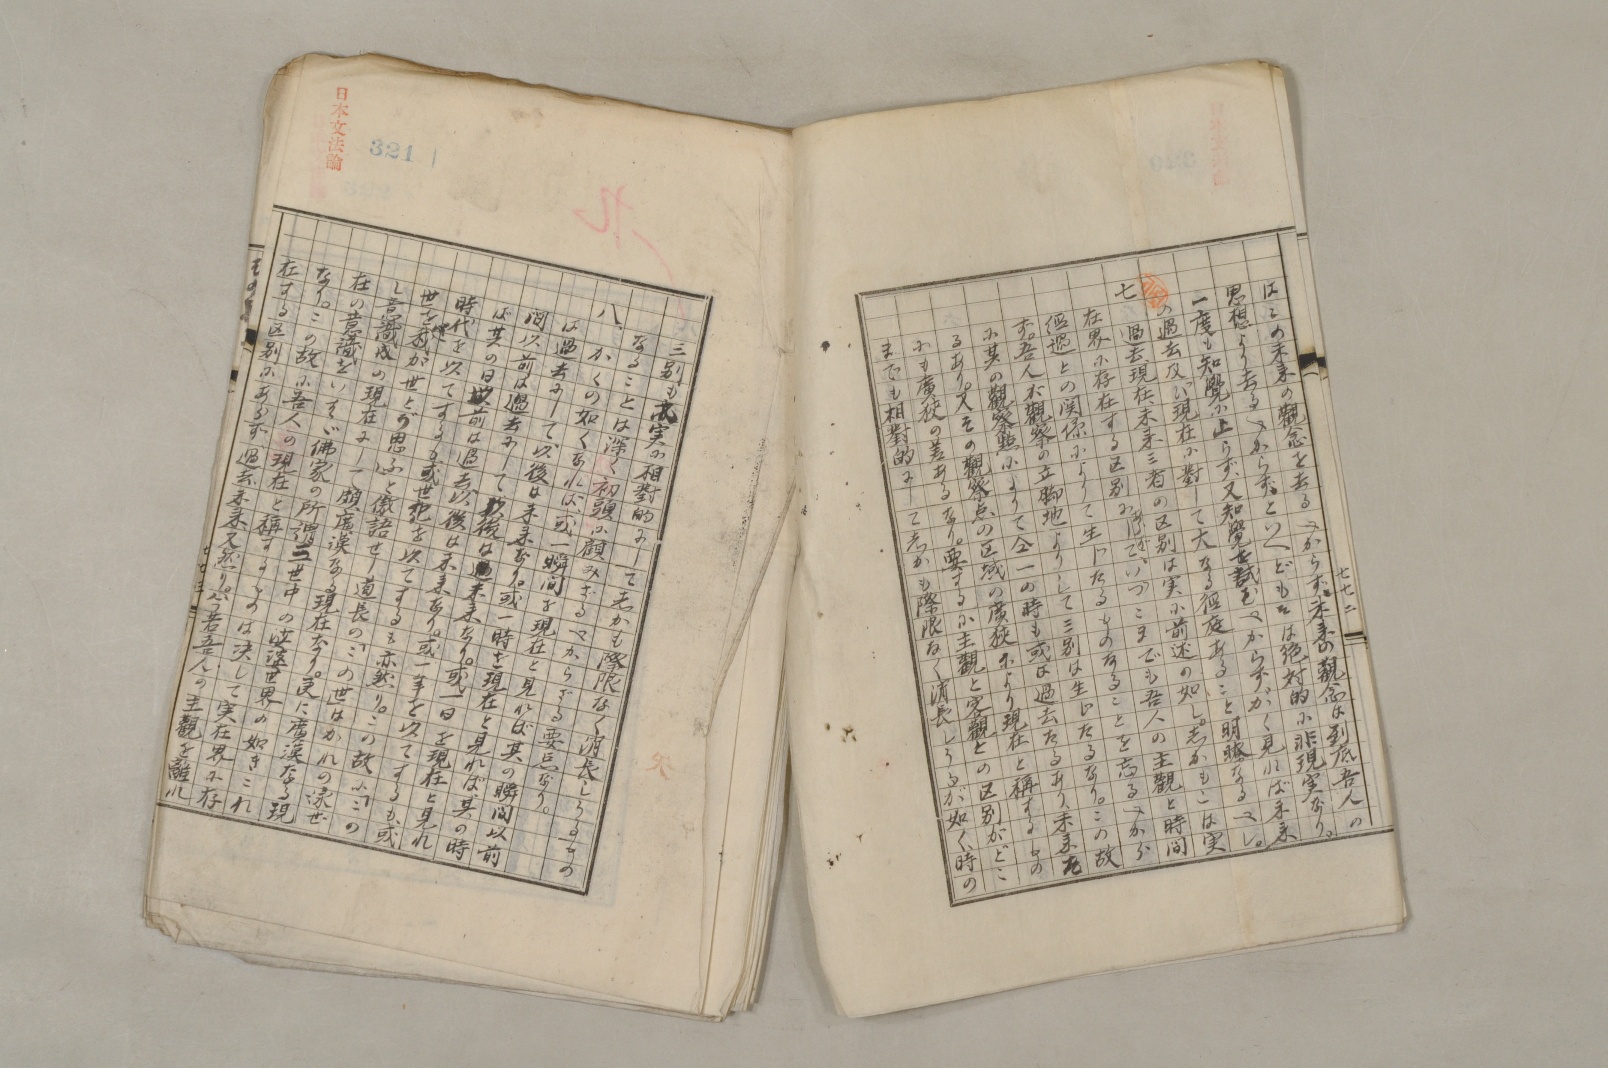 はこの未来の観念を去るべからず。未来の観念は到底吾人の
思想より去るべからずといへどもそは絶対的に非現実なり。
一度も知覺に上らず又知覺を試むべからずかく見れば未来
の過去及び現在に對して大なる徑庭あること明瞭なるべし。
七 過去現在未来三者の区別は実に前述の如し。しかもこは実
在界に存在する区別にあらずいつこまでも吾人の主觀と時間
經過との関係によりて生じたるものなることを忘るべから
ず。吾人が觀察の立脚地よりして三別は生じたるなり。この故
に其の觀察點によりて仝一の時も或は過去たるあり、未来た
るあり。又その觀察点の区域の廣狭により現在と稱するもの
にも廣狭の差あるなり。要するに主觀と客觀との区別がどこ
までも相對的にしてしかも際限なく消長しうるが如く、時の
七七二
日本文法論
321
三別も亦実に相對的にしてしかも際限なく消長しうるもの
なることは深く初頭に顧みざるべからざる要点なり。
八、かくの如くなれば或一瞬間を現在と見れば其の瞬間以前
は過去にして、以後は未来なり。或一時を現在と見れば、其の時
間以前は過去にして以後は未来なり。或一日を現在と見れ
ば其の日以前は過去、以後は未来なり。或一年を以てするも、或
時代を以てするも或世紀を以てするも亦然り。この故に「この
世を我が世とぞ思ふ」と傲語せし道長の「この世」はかれの家世
し意識の現在にして頗廣漠なる現在なり。更に廣漠なる現
在の意識をいへば佛家の所謂三世中の娑婆世界の如きこれ
なり。この故に吾人の現在と稱するものは決して実在界に存
在する区別にあらず過去未来又然り。吾人の主觀を離れ